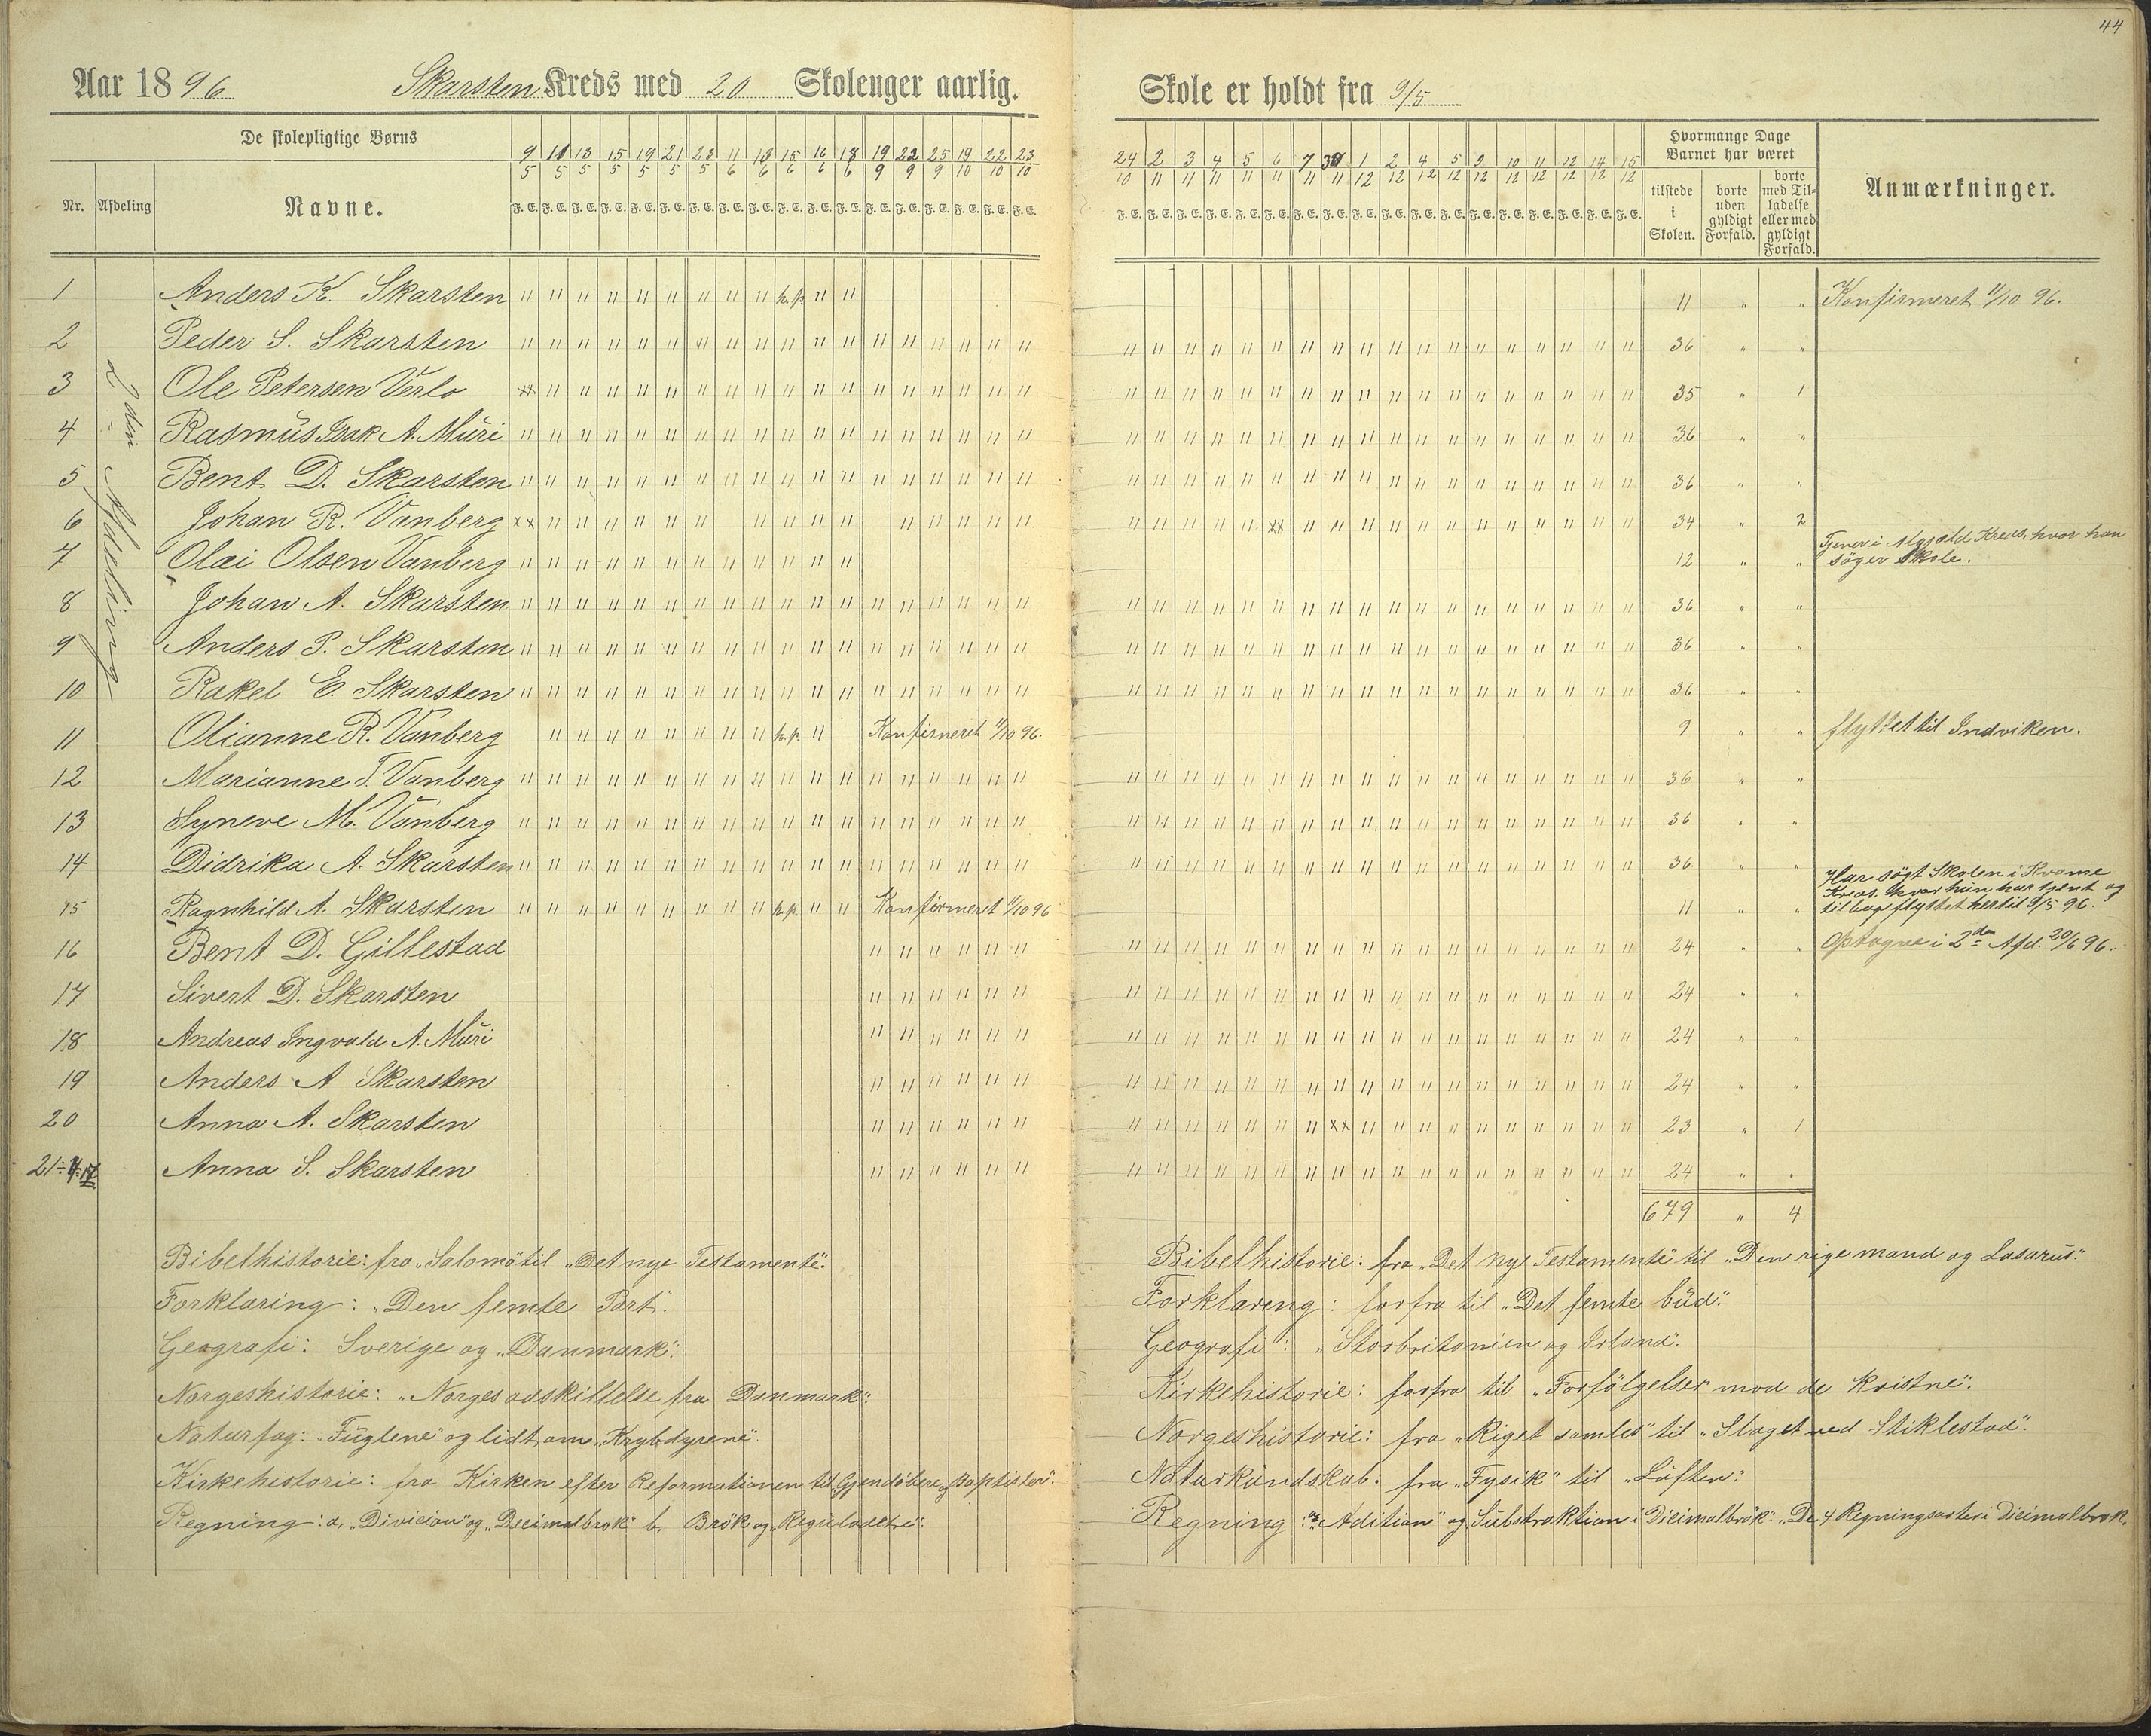 44
Aar 1896 Skarsten Kreds med 20 Skoleuger aarlig.
De skolepligtige Børns
Nr. Afdeling Navne.
9/5 11/5 13/5 15/5 19/5 21/5 23/5 11/6 13/6 15/6 16/6 18/6 19/9 22/9 25/9 19/10 22/10 23/10
F. E. F. E. F. E. F. E. F. E. F. E. F. E. F. E. F. E. F. E. F. E. F. E. F. E. F. E. F. E. F. E. F. E. F. E.
2den Afdeling
1 Anders K. Skarsten " " " " " " " " " h.p. " "
2 Peder S. Skarsten " " " " " " " " " " " " " " " " " "
3 Ole Petersen Verlo xx " " " " " " " " " " " " " " " " "
4 Rasmus Isak A. Muri " " " " " " " " " " " " " " " " " "
5 Bent D. Skarsten " " " " " " " " " " " " " " " " " "
6 Johan R. Vanberg xx " " " " " " " " " " " " " " " "
7 Olai Olsen Vanberg " " " " " " " " " " " "
8 Johan A. Skarsten " " " " " " " " " " " " " " " " " "
9 Anders P. Skarsten " " " " " " " " " " " " " " " " " "
10 Rakel E. Skarsten " " " " " " " " " " " " " " " " " "
11 Olianne R. Vanberg " " " " " " " " h.p. " Konfirmeret 11/10 96.
12 Marianne T. Vanberg " " " " " " " " " " " " " " " " " "
13 Syneve M. Vanberg " " " " " " " " " " " " " " " " " "
14 Didrika A. Skarsten " " " " " " " " " " " " " " " " " "
15 Ragnhild A. Skarsten " " " " " " " " " h.p. " " Konfirmeret 11/10 96
16 Bent D. Gillestad " " " " " "
17 Sivert D. Skarsten " " " " " "
18 Andreas Ingvald A. Muri " " " " " "
19 Anders A Skarsten " " " " " "
20 Anna A. Skarsten " " " " " "
21 Anna S. Skarsten " " " " " "
Bibelhistorie: fra "Salomo" til "Det nye Testamente".
Forklaring: "Den femte Part".
Geografi: Sverige og "Danmark".
Norgeshistorie: "Norges adskillelse fra Danmark".
Naturfag: "Fuglene" og lidt om "Krybdyrene"
Kirkehistorie: fra Kirken efter Reformationen til Gjendøbere og Baptister".
Regning: a, "Division" og "Decimalbrøk" b, Brøk og "Reguladetri".
Skole er holdt fra 9/5
24/10 2/11 3/11 4/11 5/11 6/11 7/11 30/11 1/12 2/12 4/12 5/12 9/12 10/12 11/12 12/12 14/12 15/12
F. E. F. E. F. E. F. E. F. E. F. E. F. E. F. E. F. E. F. E. F. E. F. E. F. E. F. E. F. E. F. E. F. E. F. E.
Hvormange Dage Barnet har været
tilstede i Skolen. borte uden gyldigt Forfald. borte med Tilladelse eller med gyldigt Forfald.
Anmærkninger.
11 " " Konfirmeret 11/10 96.
" " " " " " " " " " " " " " " " " " 36 " "
" " " " " " " " " " " " " " " " " " 35 " 1
" " " " " " " " " " " " " " " " " " 36 " "
" " " " " " " " " " " " " " " " " " 36 " "
" " " " " xx " " " " " " " " " " " " 34 " 2
12 " " Tjener i Kreds, hvor han
søger Skole.
" " " " " " " " " " " " " " " " " " 36 " "
" " " " " " " " " " " " " " " " " " 36 " "
" " " " " " " " " " " " " " " " " " 36 " "
9 " " flyttet til Indviken.
" " " " " " " " " " " " " " " " " " 36 " "
" " " " " " " " " " " " " " " " " " 36 " "
" " " " " " " " " " " " " " " " " " 36 " "
Har søgt Skolen i Kvame
Kreds, hvor hun har tjent og
11 " " tilbage flyttet hertil 9/5 96.
" " " " " " " " " " " " " " " " " " 24 " " Optagne i 2den Afd. 20/6 96.
" " " " " " " " " " " " " " " " " " 24 " "
" " " " " " " " " " " " " " " " " " 24 " "
" " " " " " " " " " " " " " " " " " 24 " "
" " " " " " " xx " " " " " " " " " " 23 " 1
" " " " " " " " " " " " " " " " " " 24 " "
679 " 4
Bibelhistorie: fra "Det nye Testamente" til "Den rige mand og Lasarus".
Forklareng: forfra til "Det femte bud".
Geografi: "Storbritanien og Irland".
Kirkehistorie: forfra til "Forfølgelser mod de kristne".
Norgeshistorie: fra "Riget samles" til "Slaget ved Stiklestad".
Naturkundskab: fra "Fysik" til "Luften".
Regning: "Adition" og Substraktion i Dicimalbrøk". "De 4 Regningsarter i Dicimalbrøk.